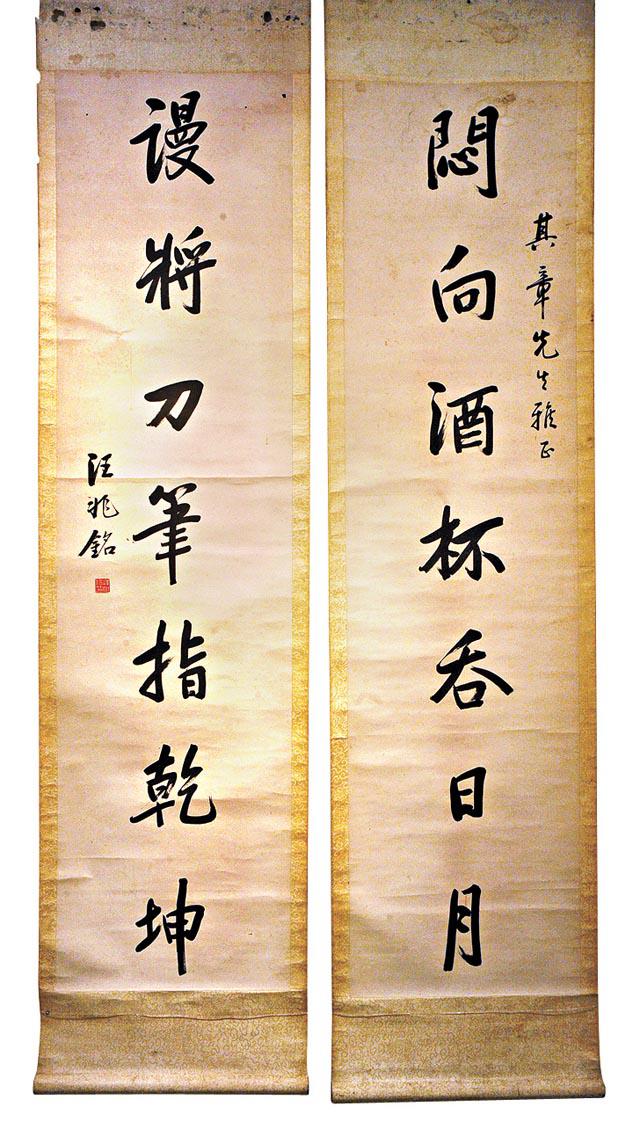 其章先生雅正
悶向酒杯吞日月
謾將刀筆指乾坤
汪兆銘